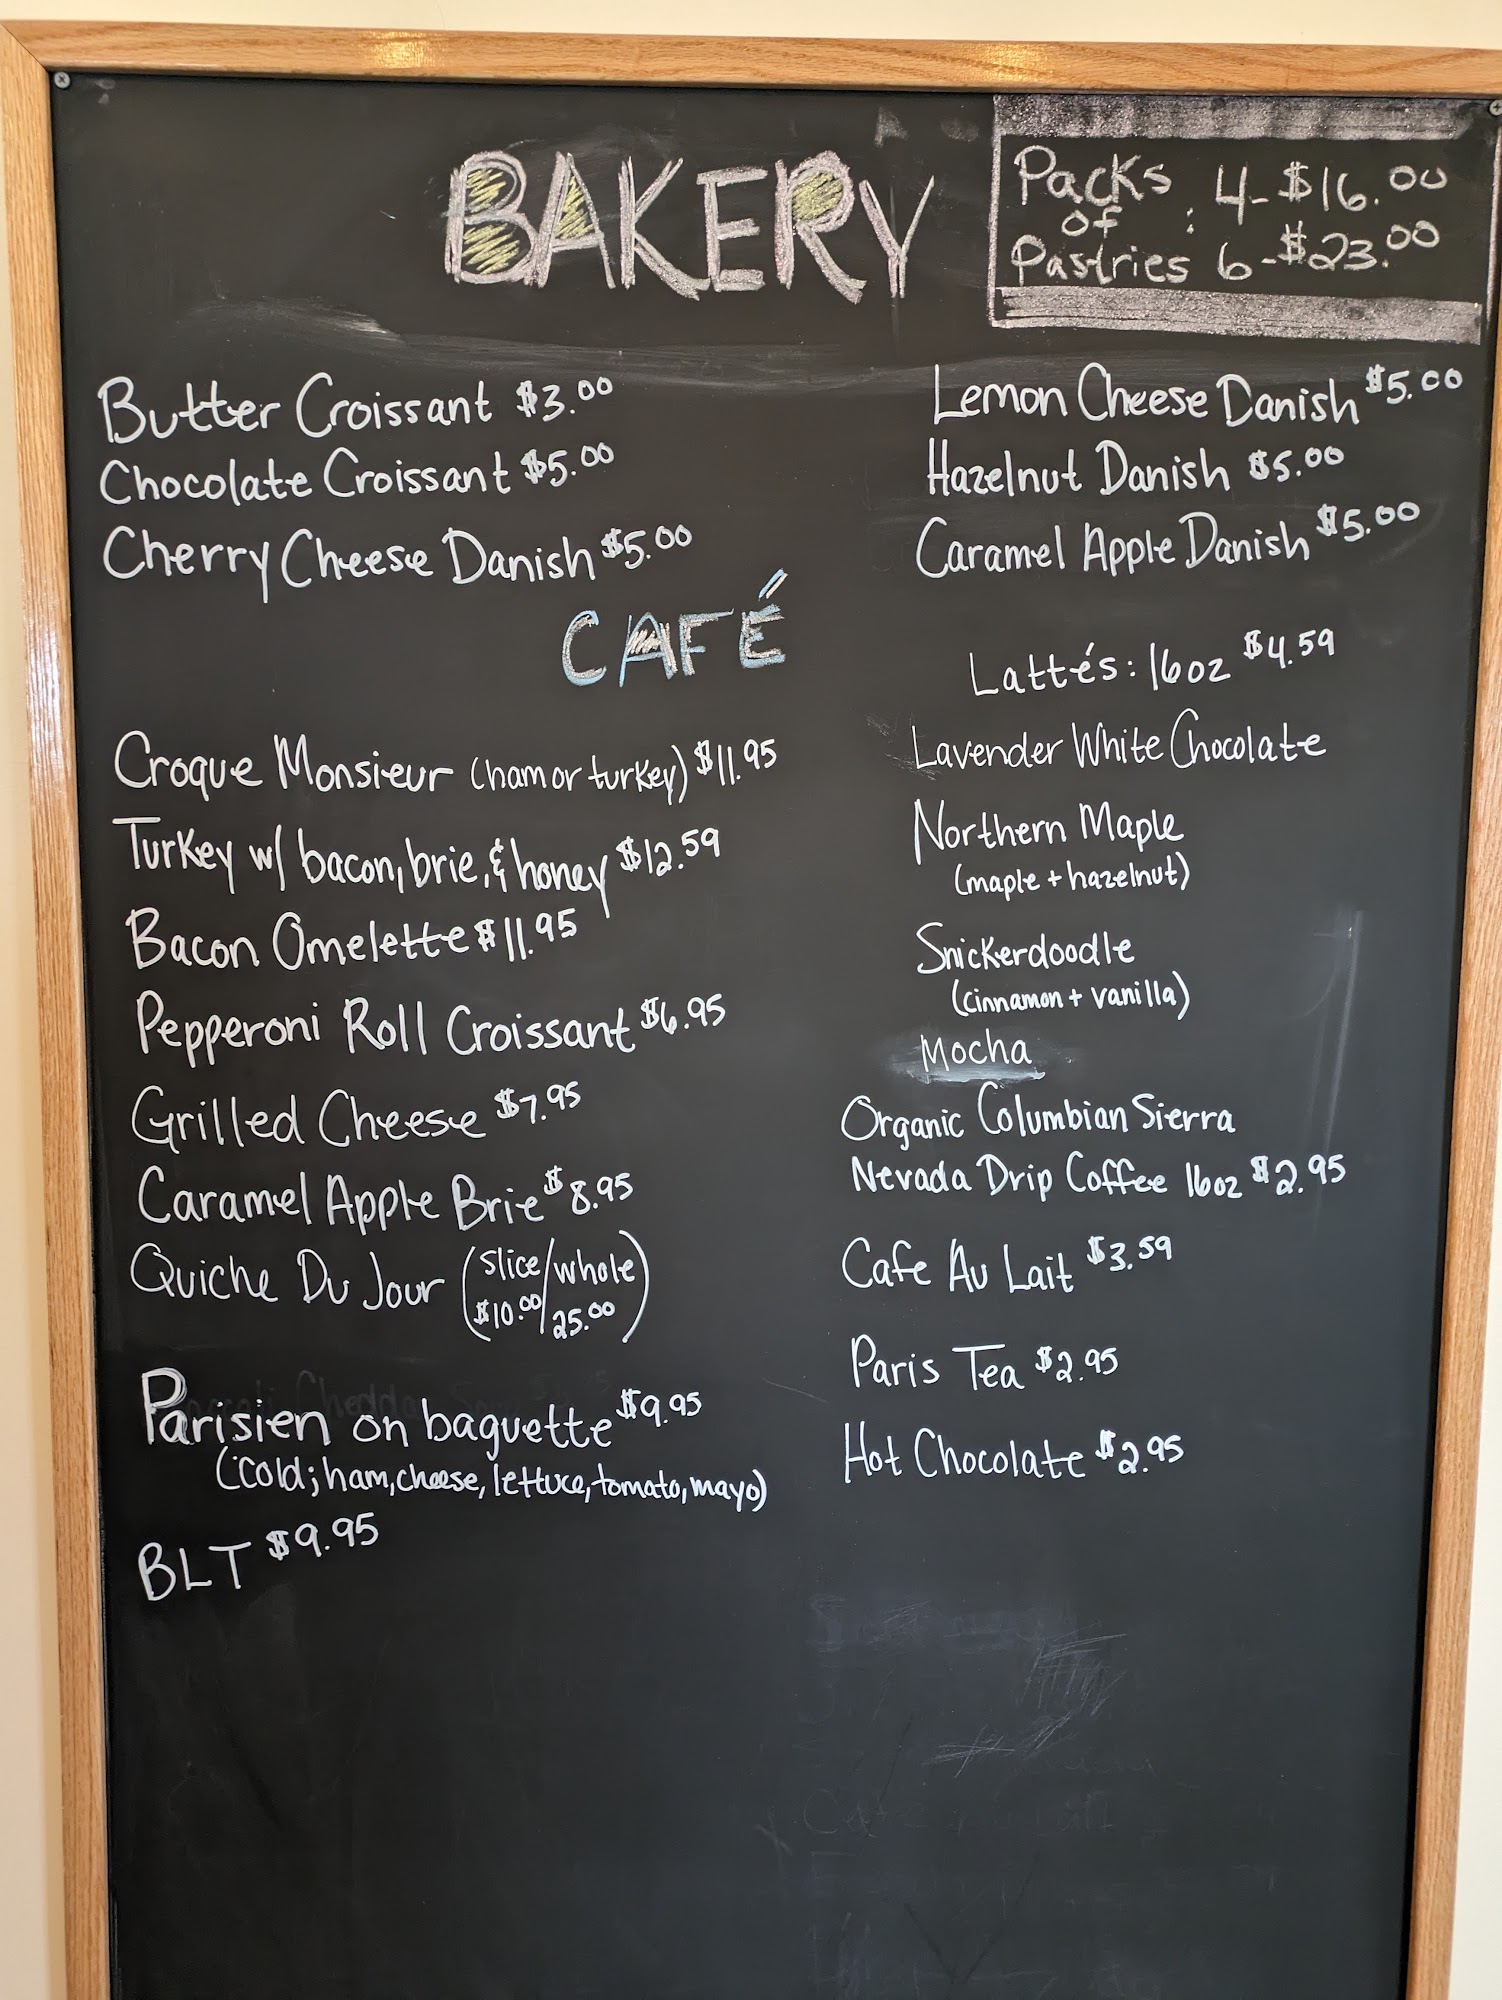 BAKERY
Packs of Pastries : 4-$16.00
6-$23.00
Butter Croissant $3.00
Chocolate Croissant $5.00
Cherry Cheese Danish $5.00
Lemon Cheese Danish $5.00
Hazelnut Danish $5.00
Caramel Apple Danish $5.00
CAFÉ
Croque Monsieur (ham or turkey) $11.95
Turkey w/ bacon, brie, & honey $12.59
Bacon Omelette $11.95
Pepperoni Roll Croissant $6.95
Grilled Cheese $7.95
Caramel Apple Brie $8.95
Quiche Du Jour (slice/whole
$10.00/25.00)
Parisien on baguette $9.95
(cold; ham, cheese, lettuce, tomato, mayo)
BLT $9.95
Lattés: 16oz $4.59
Lavender White Chocolate
Northern Maple
(maple + hazelnut)
Snickerdoodle
(cinnamon + vanilla)
Mocha
Organic Columbian Sierra
Nevada Drip Coffee 16oz $2.95
Cafe Au Lait $3.59
Paris Tea $2.95
Hot Chocolate $2.95